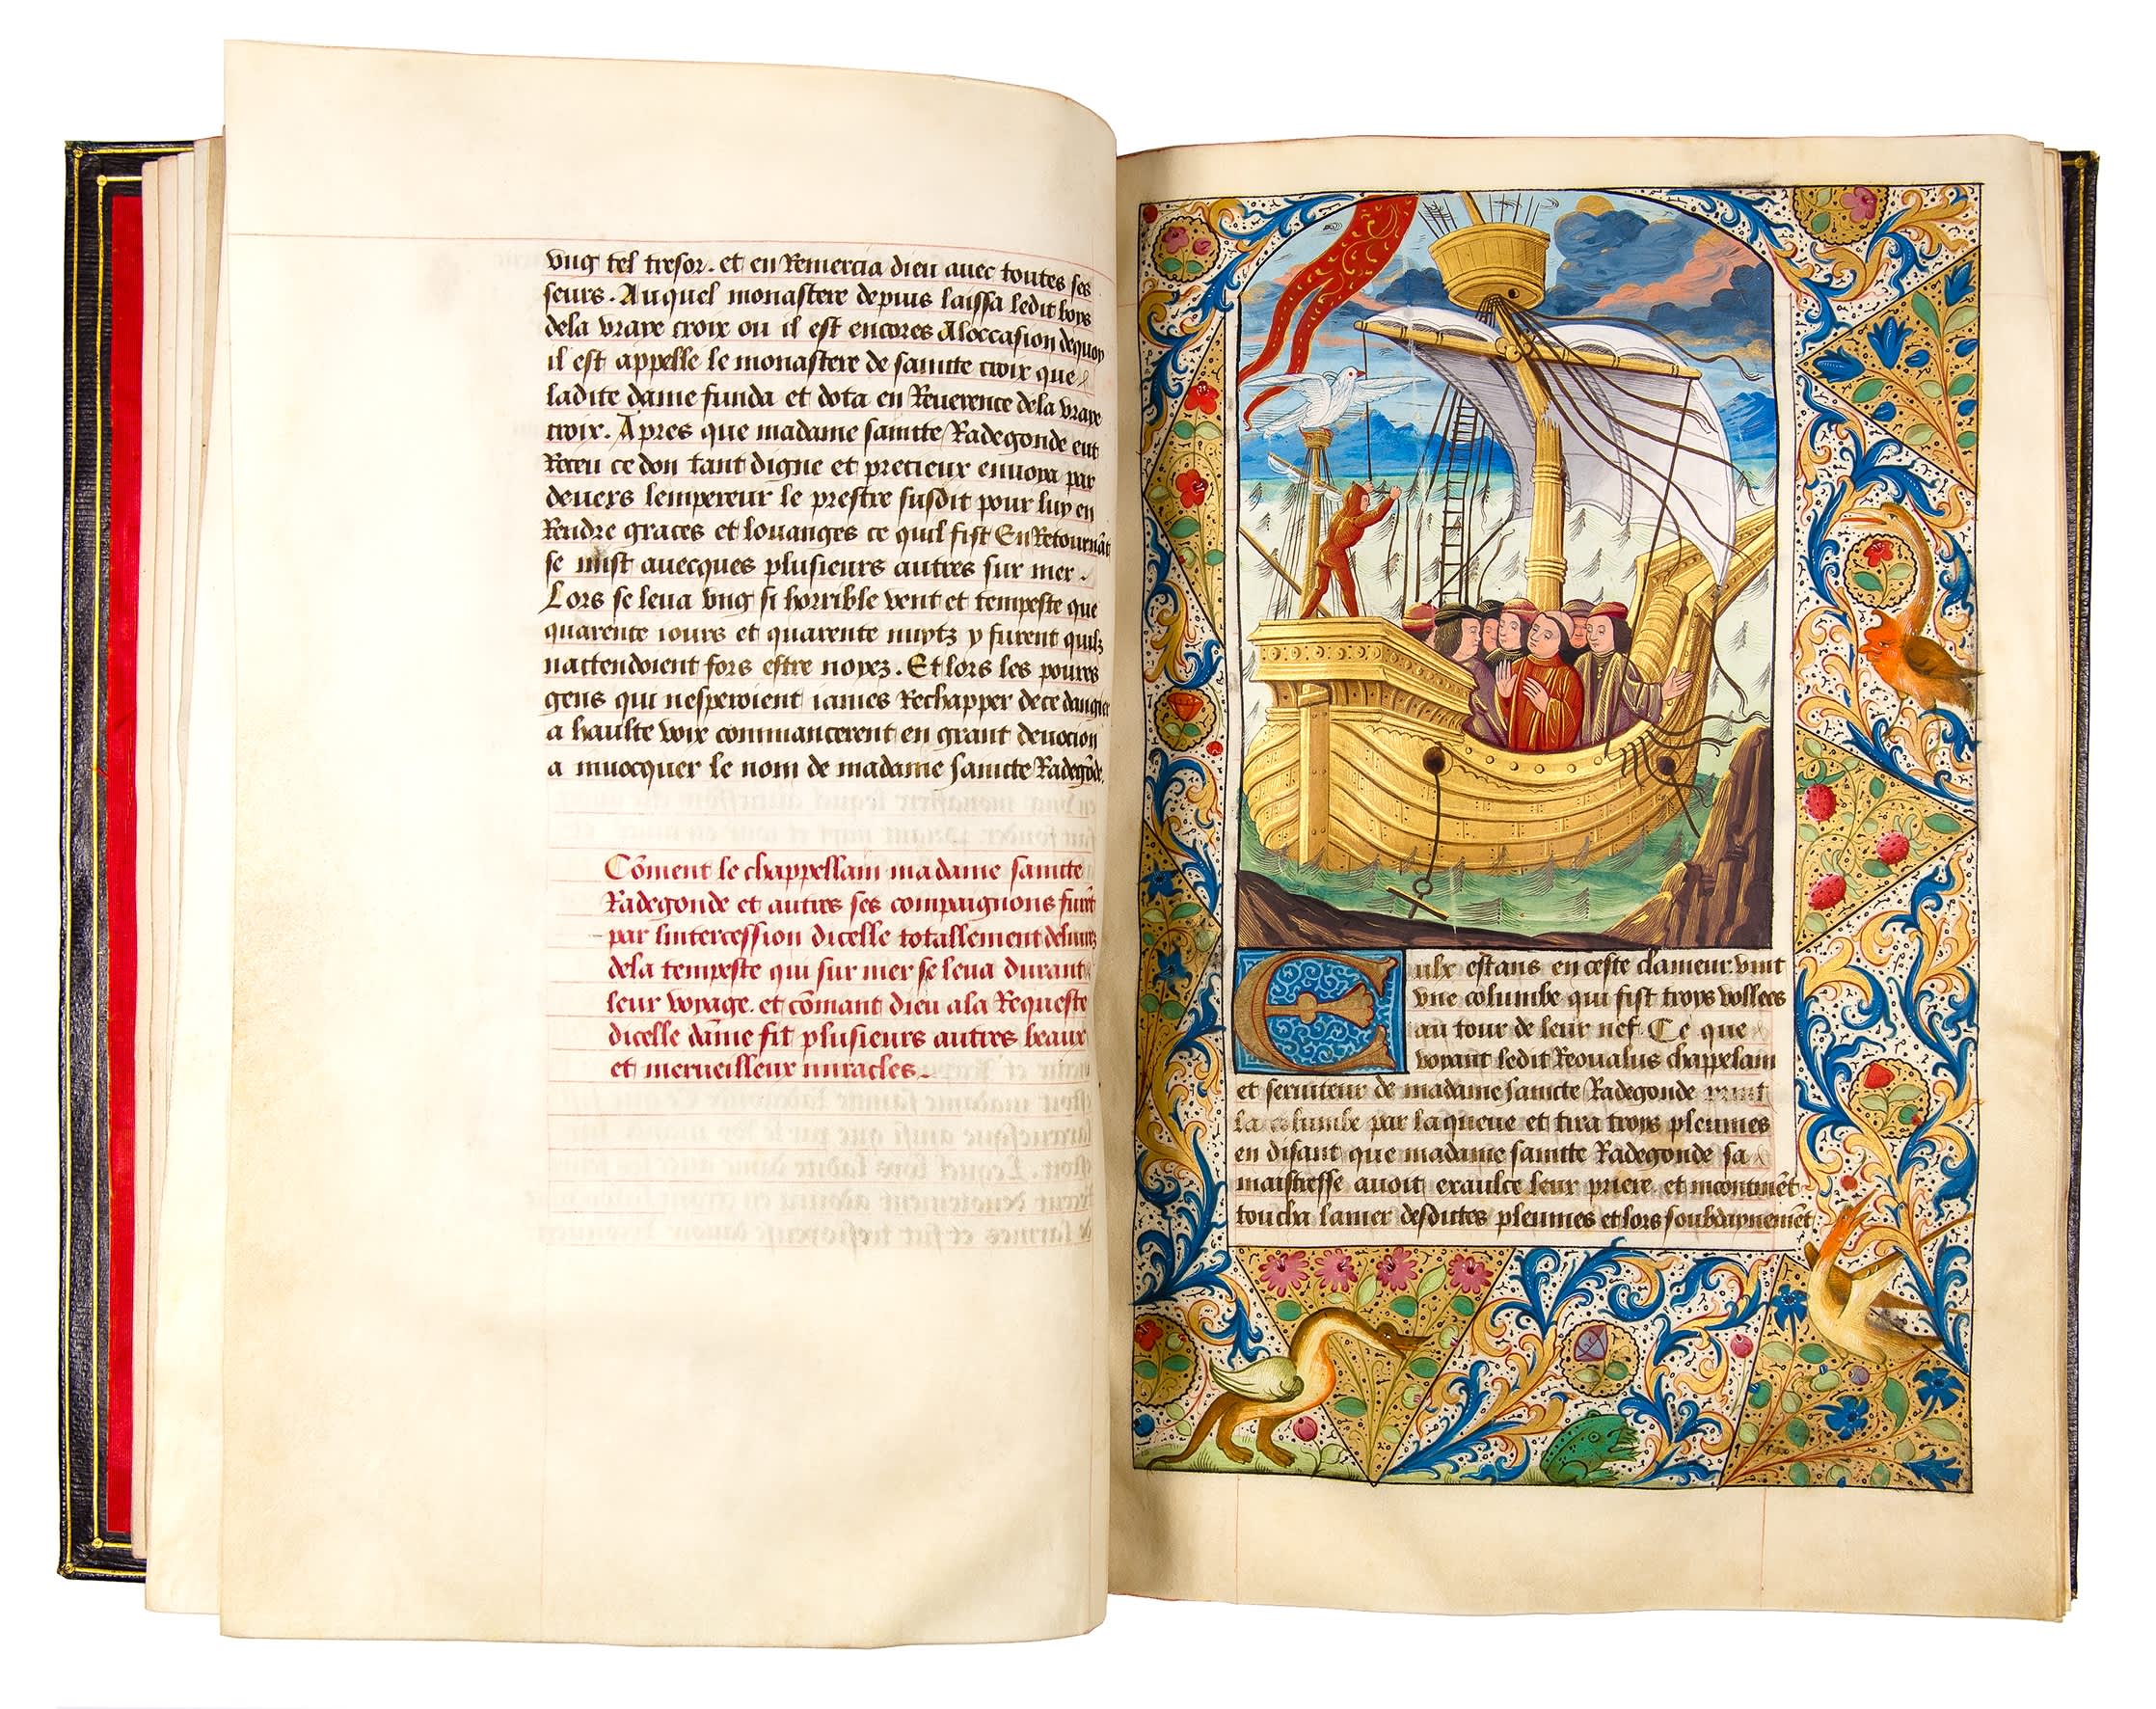 vng tel tresor. et en Remercia dieu auec toutes ses
seurs. Auquel monastere depuis laissa ledit boys
dela vraye croix ou il est encores Aloccasion dequoy
il est appelle le monastere de saincte croix que
ladite dame funda et dota en Reuerence dela vraye
croix. Apres que madame saincte Radegonde eut
Receu ce don tant digne et precieux enuoya par
deuers lempereur le prestre susdit pour luy en
Rendre graces et louanges ce quil fist En Retournāt
se mist auecques plusieurs autres sur mer.
Lors se leua vng si horrible vent et tempeste que
quarente iours et quarente nuytz y furent quilz
nactendoient fors estre noyez. Et lors les poures
gens qui nesperoient iames Rechapper dece dangier
a haulte voix commancerent en grant deuocion
a inuocquer le nom de madame saincte Radegōde.
Cōment le chappellain madame saincte
Radegonde et autres ses compaignons furēt
par lintercession dicelle totallement deliurez
dela tempeste qui sur mer se leua durant
leur voyage. et cōmant dieu ala Requeste
dicelle dāme fit plusieurs autres beaux
et merueilleux miracles.
Eulx estans en ceste clameur. vint
vne columbe qui fist troys vollees
au tour de leur nef. Ce que
voyant ledit Reoualus chappelain
et seruiteur de madame saincte Radegonde print
la columbe par la queue et tira troys pleumes
en disant que madame saincte Radegonde sa
maistresse auoit exaulce leur priere. et incontinēt
toucha lamer desdictes pleumes et lors soubdaynement